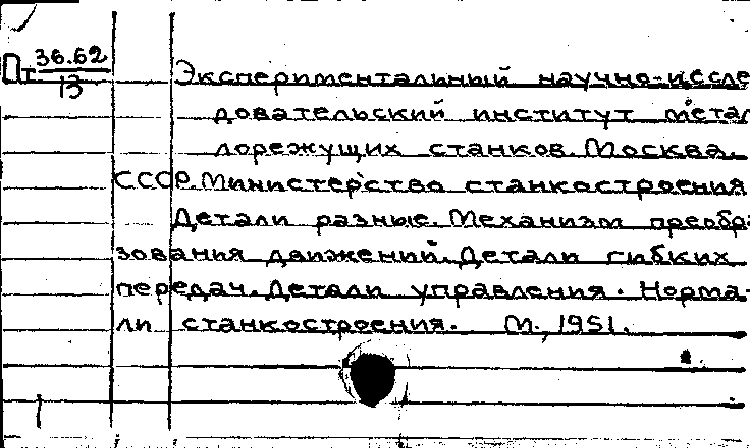 Пт 36.62
13
Эксперименталиный научно-иссле
довательский институт метал
лорежущих станков. Москва.
СССР. Министерство станкостроения
Детали разные. Механизм преобра
зования движений. Детали гибких
передач. Детали управления. Норма-
ли станкостроения. М., 1951.